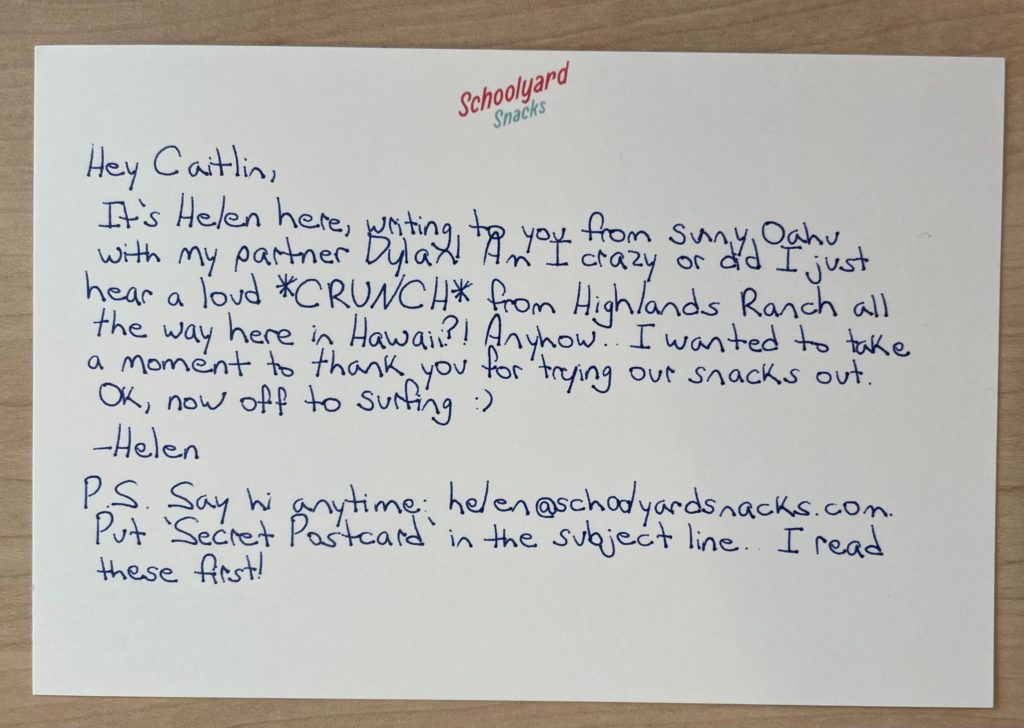 Schoolyard
Snacks
Hey Caitlin,
It's Helen here, writing to you from sunny Oahu
with my partner Dylan! Am I crazy or did I just
hear a loud *CRUNCH* from Highlands Ranch all
the way here in Hawaii?! Anyhow.. I wanted to take
a moment to thank you for trying our snacks out.
OK, now off to surfing :)
-Helen
P.S. Say hi anytime: helen@schoolyardsnacks.com.
Put 'Secret Postcard' in the subject line.. I read
these first!